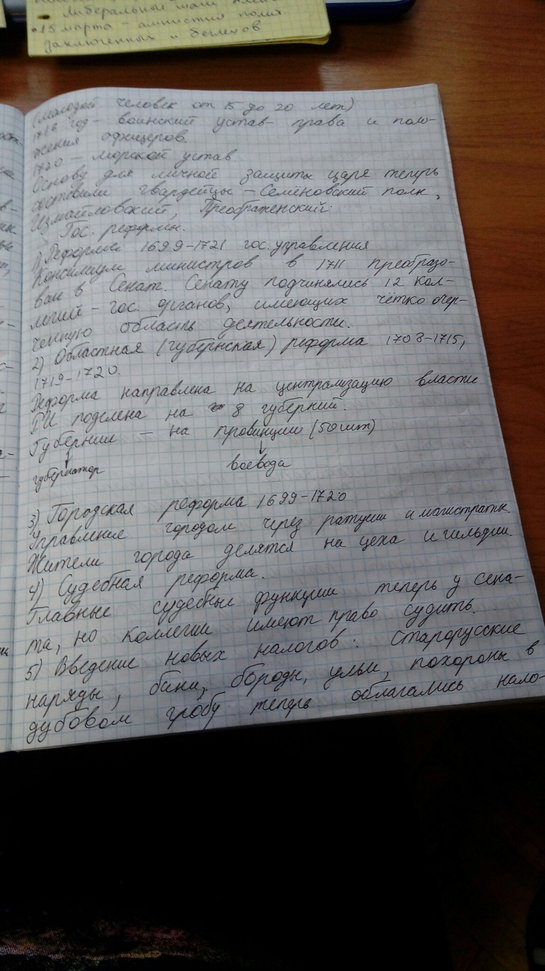 либеральной
• 15 марта - амнистия полит
заключенных и беглецов
(молодой человек от 15 до 20 лет)
1716 год - воинский устав - права и поло-
жения офицеров
1720 - морской устав
Основу для личной защиты царя теперь
составили гвардейцы - Семёновский полк,
Измайловский, Преображенский.
Гос. реформы.
1) Реформы 1699-1721 гос. управления
Консилиум министров в 1711 преобразо-
ван в Сенат. Сенату подчинялись 12 кол-
легий - гос. органов, имеющих четко очер-
ченную область деятельности.
2) Областная (губернская) реформа 1708-1715,
1719-1720.
Реформа направлена на централизацию власти
РИ поделена на 8 губерний.
Губернии - на провинции (50 шт)
губернатор воевода
3) Городская реформа 1699-1720
Управление городом через ратуши и магистраты
Жители города делятся на цеха и гильдии.
4) Судебная реформа.
Главные судебные функции теперь у сена-
та, но коллегии имеют право судить.
5) Введение новых налогов: старорусские
наряды, бани, бороды, ульи, похороны в
дубовом гробу теперь облагались нало-